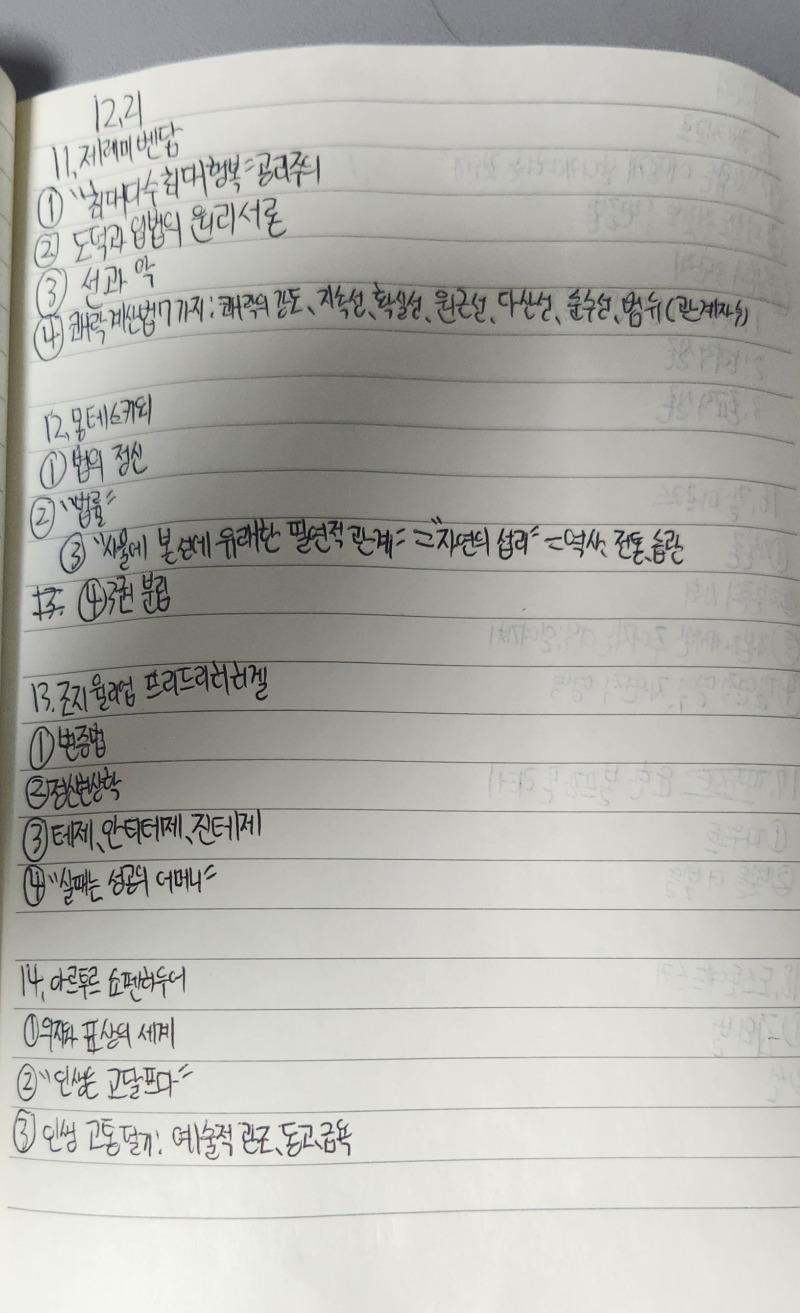 12.21
11. 제레미 벤담
① "최대다수 최대행복" 공리주의
② 도덕과 입법의 원리서론
③ 선과 악
④ 쾌락계산법 7가지: 쾌락의 강도、지속성、확실성、원근성、다산성、순수성、범위(관계자수)
12. 몽테스키외
① 법의 정신
② "법률"
③ "사물에 본성에 유래한 필연적 관계" = "자연의 섭리" = 역사、전통、습관
13. ④ 3권 분립
13. 조지 윌리엄 프리드리히 헤겔
① 변증법
② 정신현상학
③ 테제、안티테제、진테제
④ "실패는 성공의 어머니"
14. 아르투르 쇼펜하우어
① 의지와 표상의 세계
② "인생은 고달프다"
③ 인생 고통 달기: 예술적 관조、동고、금욕